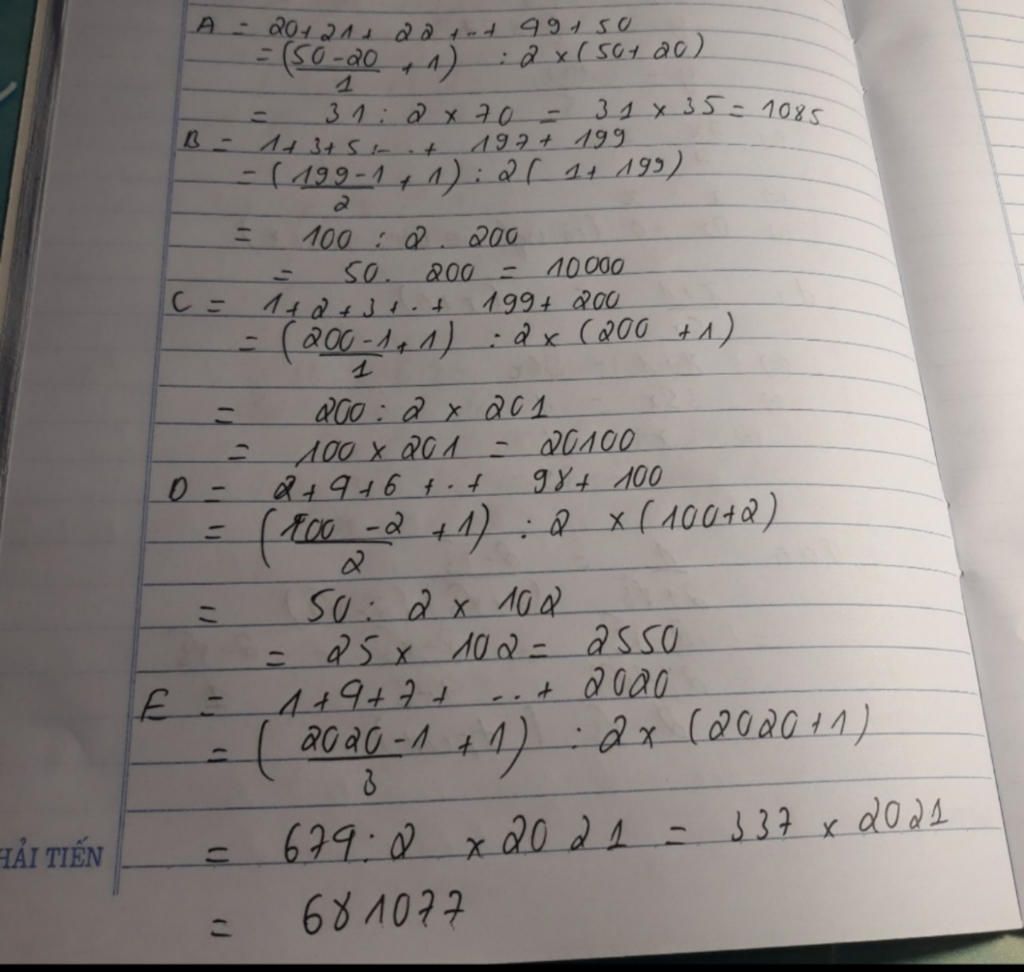 A = 20+21+ 22 +..+ 49+50
= (50-20/1 + 1) : 2 x (50+ 20)
= 31 : 2 x 70 = 31 x 35 = 1085
B = 1+3+5+...+ 197+ 199
= (199-1/2 + 1) : 2( 1+ 199)
= 100 : 2 . 200
= 50. 200 = 10000
C = 1+2+3+..+ 199+ 200
= (200-1/1 + 1) : 2 x (200 +1)
= 200 : 2 x 201
= 100 x 201 = 20100
D = 2+4+6 +..+ 98+ 100
= (100 -2/2 + 1) : 2 x (100+2)
= 50 : 2 x 102
= 25 x 102 = 2550
E = 1+4+7+ ...+ 2020
= (2020-1/3 + 1) : 2 x (2020+1)
= 674 : 2 x 2021 = 337 x 2021
HẢI TIẾN
= 681077